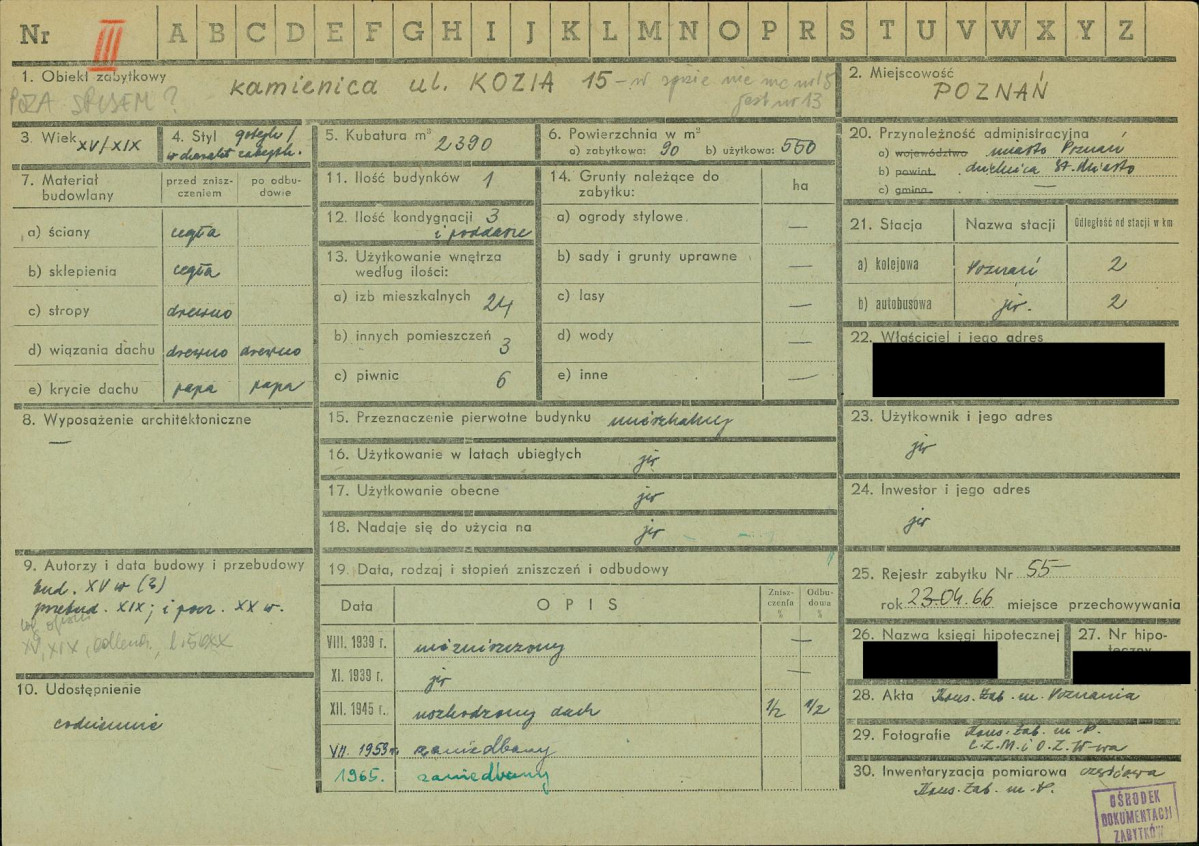 Nr III A B C D E F G H I J K L M N O P R S T U V W X Y Z
1. Obiekt zabytkowy
kamienica ul. KOZIA 15 - w spisie nie ma nr 15
jest nr 13
POZA SPISEM?
2. Miejscowość
POZNAŃ
3. Wiek XV/XIX
4. Styl gotyk/
w charakt. zabytk.
5. Kubatura m³ 2390
6. Powierzchnia w m²
a) zabytkowa: 90 b) użytkowa: 550
7. Materiał budowlany
przed zniszczeniem
po odbudowie
a) ściany cegła
b) sklepienia cegła
c) stropy drewno
d) wiązania dachu drewno drewno
e) krycie dachu papa papa
8. Wyposażenie architektoniczne
—
9. Autorzy i data budowy i przebudowy
bud. XV w (?)
przebud. XIX; i pocz. XX w.
XV, XIX,
10. Udostępnienie
codziennie
11. Ilość budynków 1
12. Ilość kondygnacji 3
i poddasze
13. Użytkowanie wnętrza
według ilości:
a) izb mieszkalnych 24
b) innych pomieszczeń 3
c) piwnic 6
14. Grunty należące do
zabytku:
ha
a) ogrody stylowe —
b) sady i grunty uprawne —
c) lasy —
d) wody —
e) inne —
15. Przeznaczenie pierwotne budynku mieszkalny
16. Użytkowanie w latach ubiegłych jw
17. Użytkowanie obecne jw
18. Nadaje się do użycia na jw
19. Data, rodzaj i stopień zniszczeń i odbudowy
Data
OPIS
Zniszczenia %
Odbudowa %
VIII. 1939 r. niezniszczony —
XI. 1939 r. jw —
XII. 1945 r. uszkodzony dach 1/2 1/2
VII. 1953 r. zaniedbany
1965. zaniedbany
20. Przynależność administracyjna
a) województwo miasto Poznań
b) powiat dzielnica St. Miasto
c) gmina —
21. Stacja
Nazwa stacji
Odległość od stacji w km
a) kolejowa Poznań 2
b) autobusowa jw. 2
22. Właściciel i jego adres
23. Użytkownik i jego adres
jw
24. Inwestor i jego adres
jw
25. Rejestr zabytku Nr 55—
rok 23.04.66 miejsce przechowywania
26. Nazwa księgi hipotecznej
27. Nr hipoteczny
28. Akta Kons. Zab. m. Poznania
29. Fotografie Kons. Zab. m. P.
C.Z.M. i O.Z. W-wa
30. Inwentaryzacja pomiarowa częściowa
Kons. Zab. m. P.
OŚRODEK
DOKUMENTACJI
ZABYTKÓW